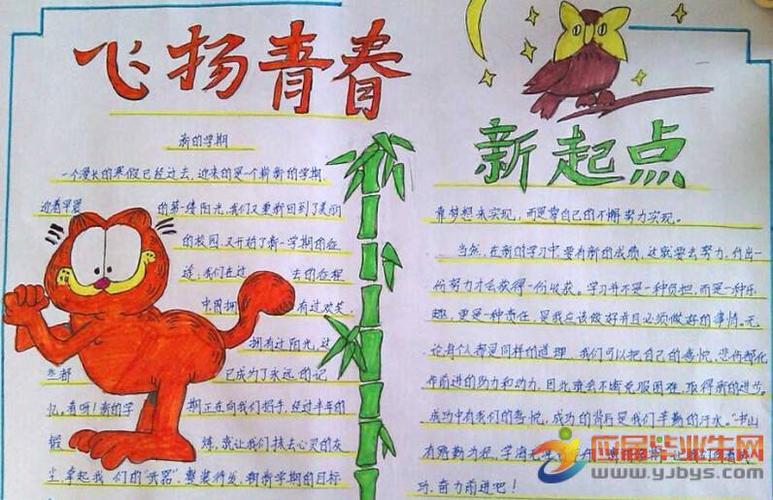 飞扬青春
新的学期
一个漫长的寒假已经过去，迎来的是一个崭新的学期，
迎着早晨的第一缕阳光，我们又重新回到了美丽
的校园，又开始了新一学期的征
途，我们在过去的征程
中拥有过欢笑，
拥有过阳光，这
些都已成为了永远的记
忆。看呀！新的学期正在向我们招手，经过半年的
锻炼，就让我们抹去心灵的灰
尘，拿起我们的“武器”，整装待发，朝新学期的目标
新起点
靠梦想来实现，而是靠自己的不懈努力实现。
当然，在新的学习中，要有新的成绩，这就要去努力，付出一
份努力才会获得一份收获。学习并不是一种负担，而是一种乐
趣，更是一种责任，是我应该做好并且必须做好的事情。无
论每个人都是同样的道理，我们可以把自己的喜悦、悲伤都化
作前进的助力和动力。因此难会不断克服困难，取得新的进步。
成功中有我们的喜悦，成功的背后是我们辛勤的汗水。“书山
有路勤为径，学海无
功，奋力前进吧！
应届毕业生网
www.yjbys.com